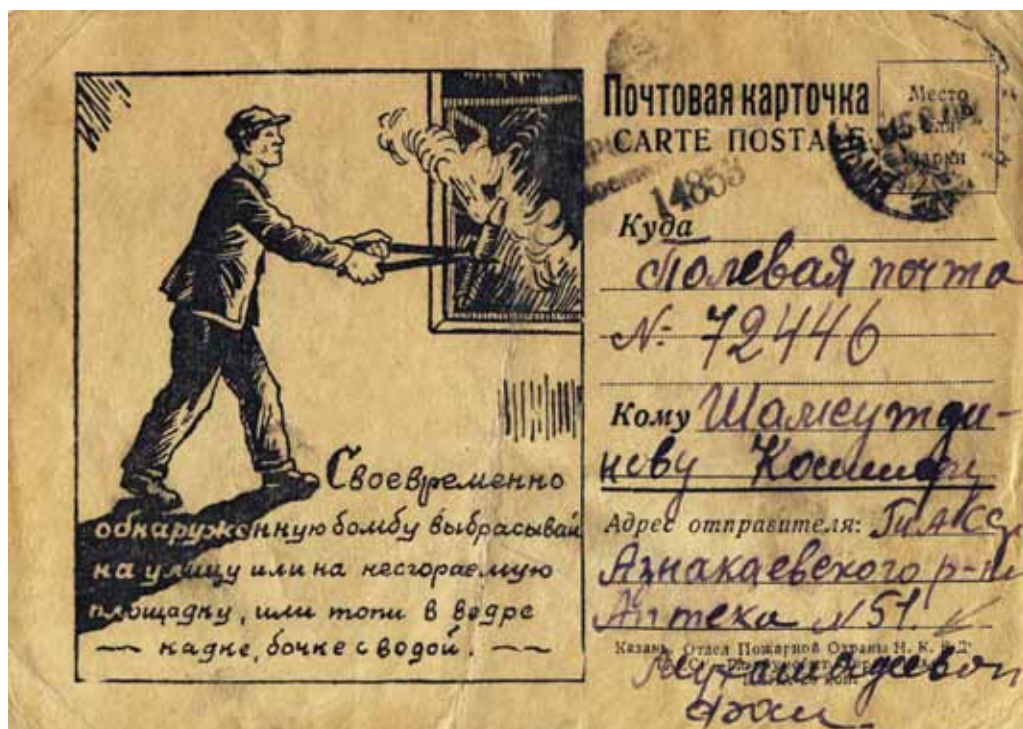 Своевременно
обнаруженную бомбу выбрасывай
на улицу или на несгораемую
площадку, или топи в ведре
кадке, бочке с водой.
Почтовая карточка
CARTE POSTALE
Место
для
марки
14853
Куда
Полевая почта
№ 72446
Кому Шамсутди-
нову
Адрес отправителя: ТиАССр
Азнакаевского р-н
Аптека №51.
Казань, Отдел Пожарной Охраны Н. К. В. Д.